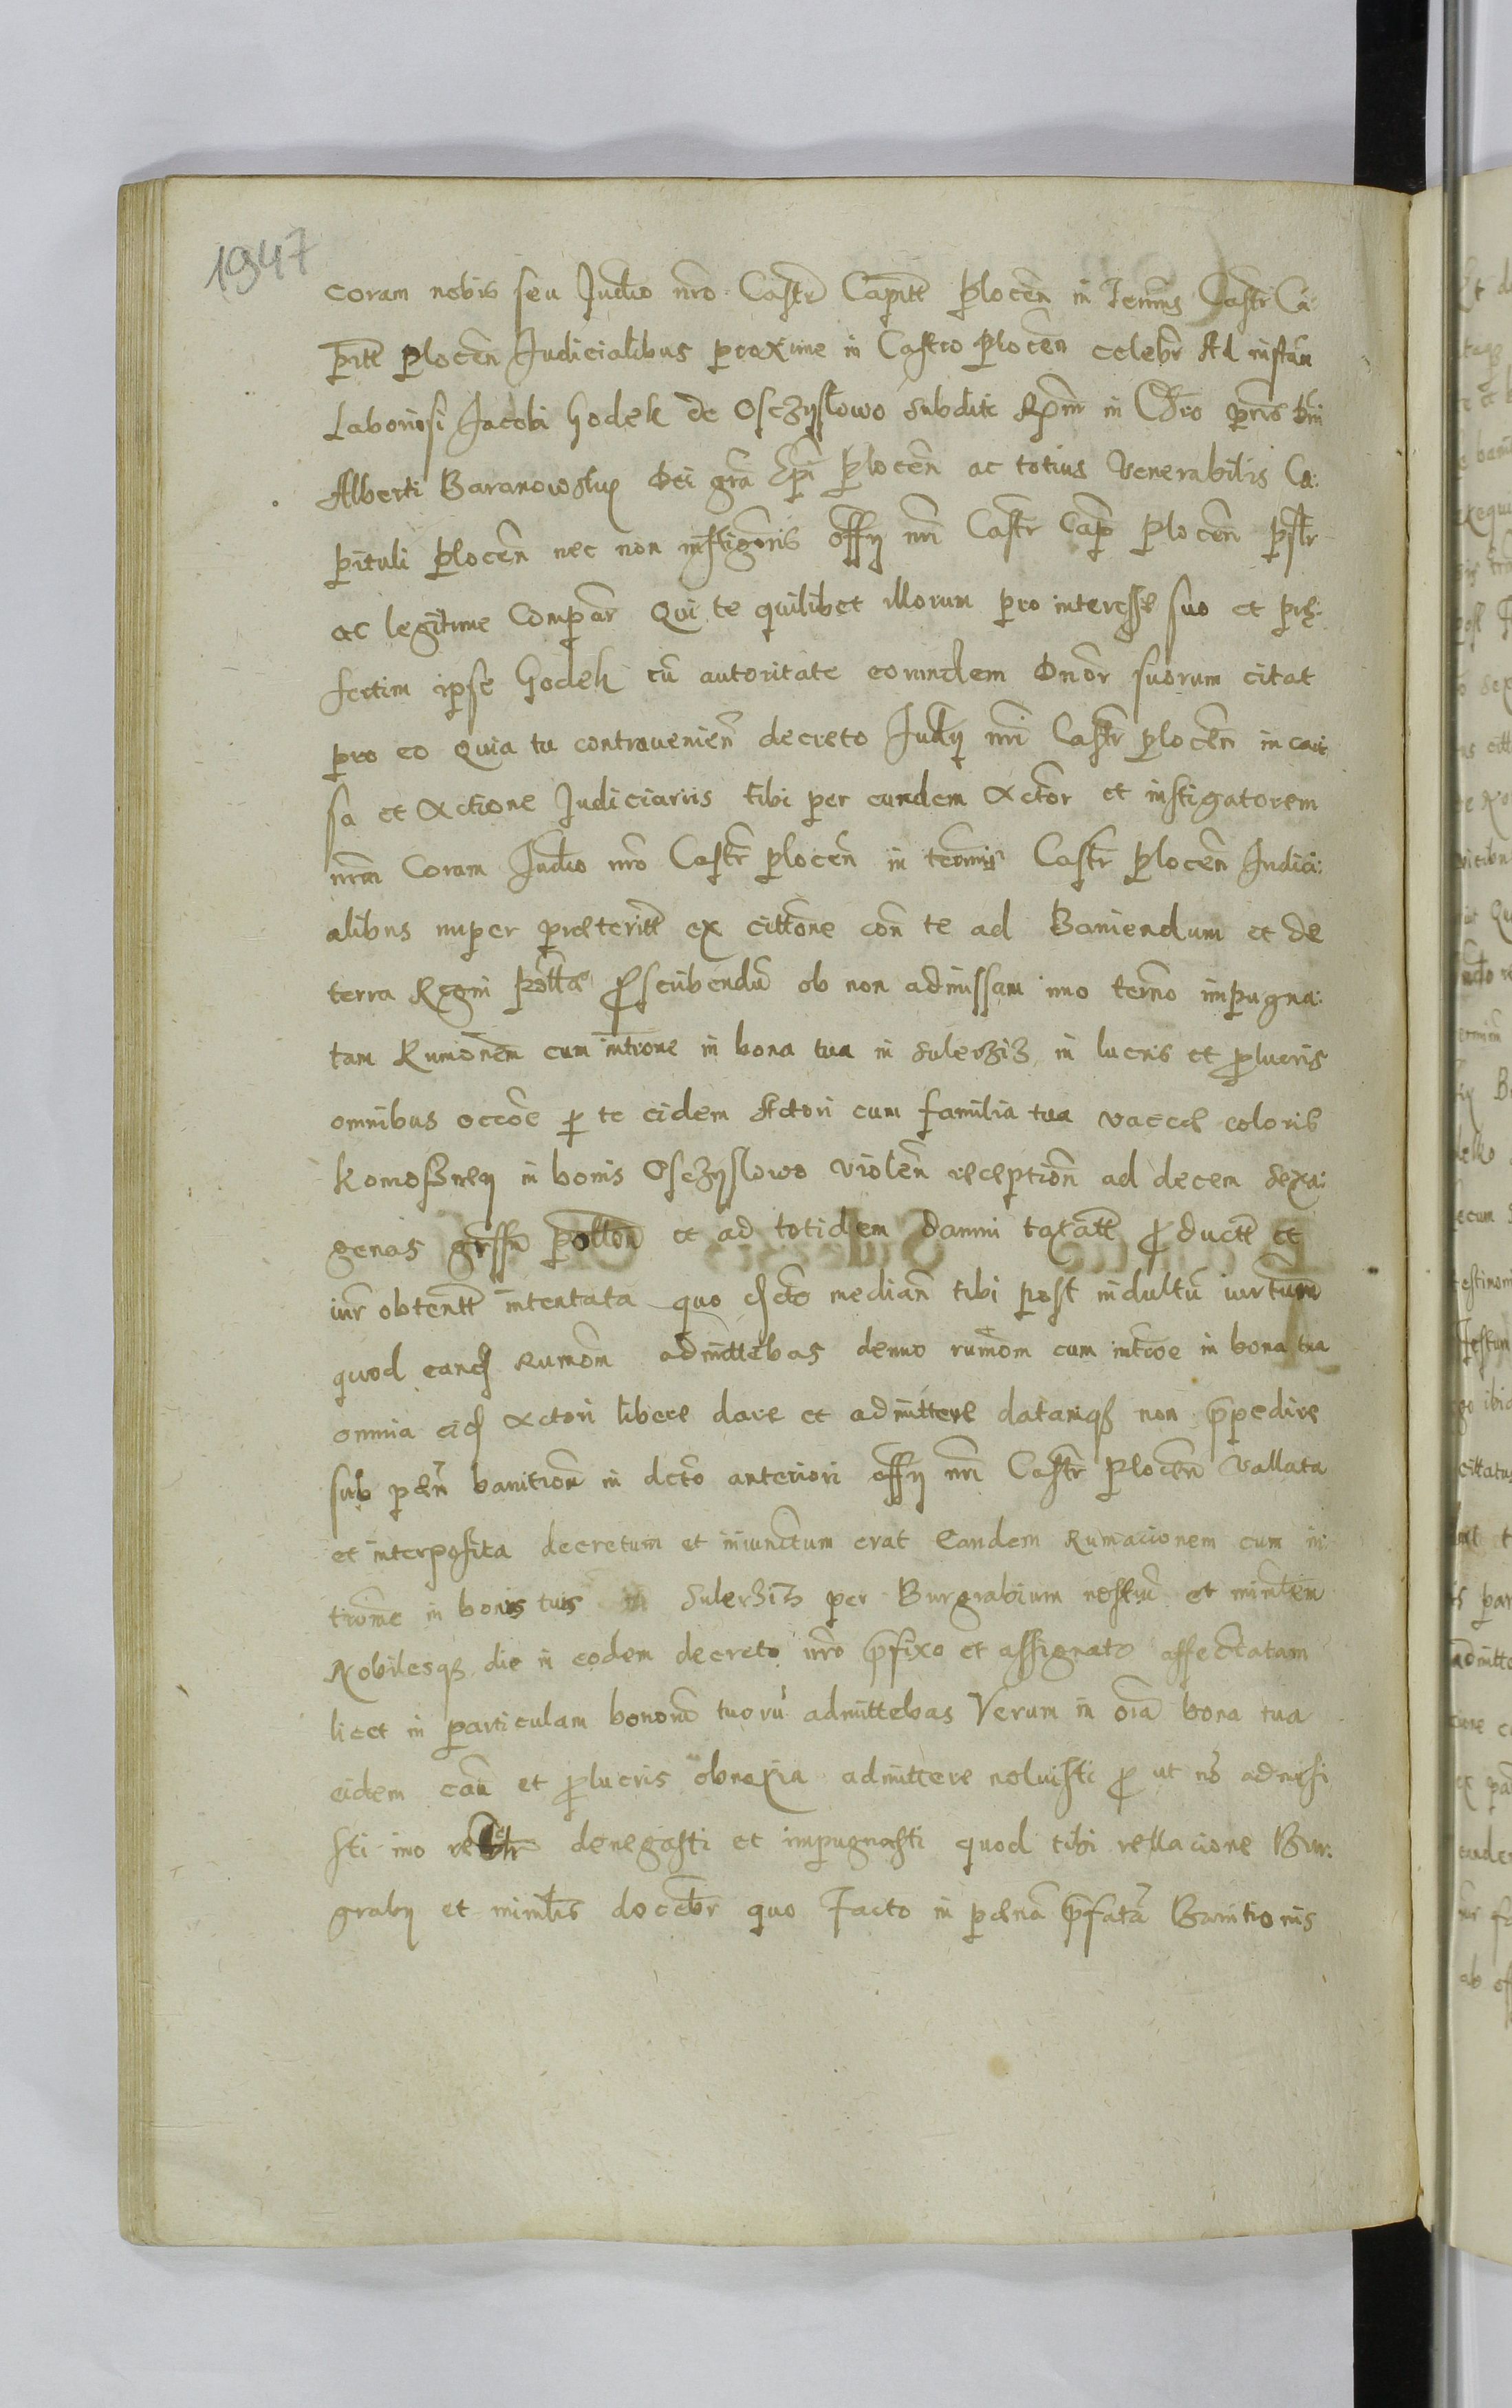 1947
coram nobis seu Judio nro Castr Capitt Plocen in Termis Castr Ca:
pitt Plocen Judicialibus proxime in Castro Plocen celebr Ad instan
Laboriosi Jacobi Godek de Osczyslowo subditi Rpmi in Chro pris dni
Alberti Baranowsky Dei gra Epi Plocen ac totius Venerabilis Ca:
pituli Plocen nec non instigoris offy nri Castr Cap Plocen pstr
ac legitime Compar Qui te quilibet illorum pro interesse suo et prę:
sertim ipse Godek cu autoritate eorundem Dnor suorum citat
pro eo Quia tu contravenien decreto Judy nri Castr plocen in cau
sa et Actione Judiciariis tibi per eundem Actor et instigatorem
nrm Coram Judio nro Castr plocen in termis Castr Plocen Judici:
alibus nuper præteritt ex cittone con te ad Baniendum et de
terra Regni proscribendu ob non admissam imo termo impugna:
tam Rumonem cum introne in bona tua in Sulerziz in lucris et perlucris
omnibus occoe p te eidem Actori cum familia tua vaccæ coloris
komoszney in bonis Osczyslowo violen reception ad decem sexa:
genas grssu pollon et ad totidem damni taxatt p ductt et
iur obtentt intentata quo dcto median tibi post indultu iurtum
quod eand Rumom admittebas denuo rumom cum introe in bona tua
omnia eid Actori libere dare et admittere datamq non prpedire
sub pæn banition in dcto anteriori offy nri Castr Plocen vallata
et interposita decretum et iniunctum erat Eandem Rumacionem cum in
trome in bonis tuis in Sulerziz per Burgrabium nostru et minlem
Nobilesq die in eodem decreto nro prfixo et assignato affectatam
licet in particulam bonoru tuoru admittebas Verum in oia bona tua
eidem cau et perlucris obnoxia admittere noluisti p ut no admisi
sti imo denegasti et impugnasti quod tibi rellacione Bur:
graby et minlis docebr quo Facto in pæna prfata Banitionis